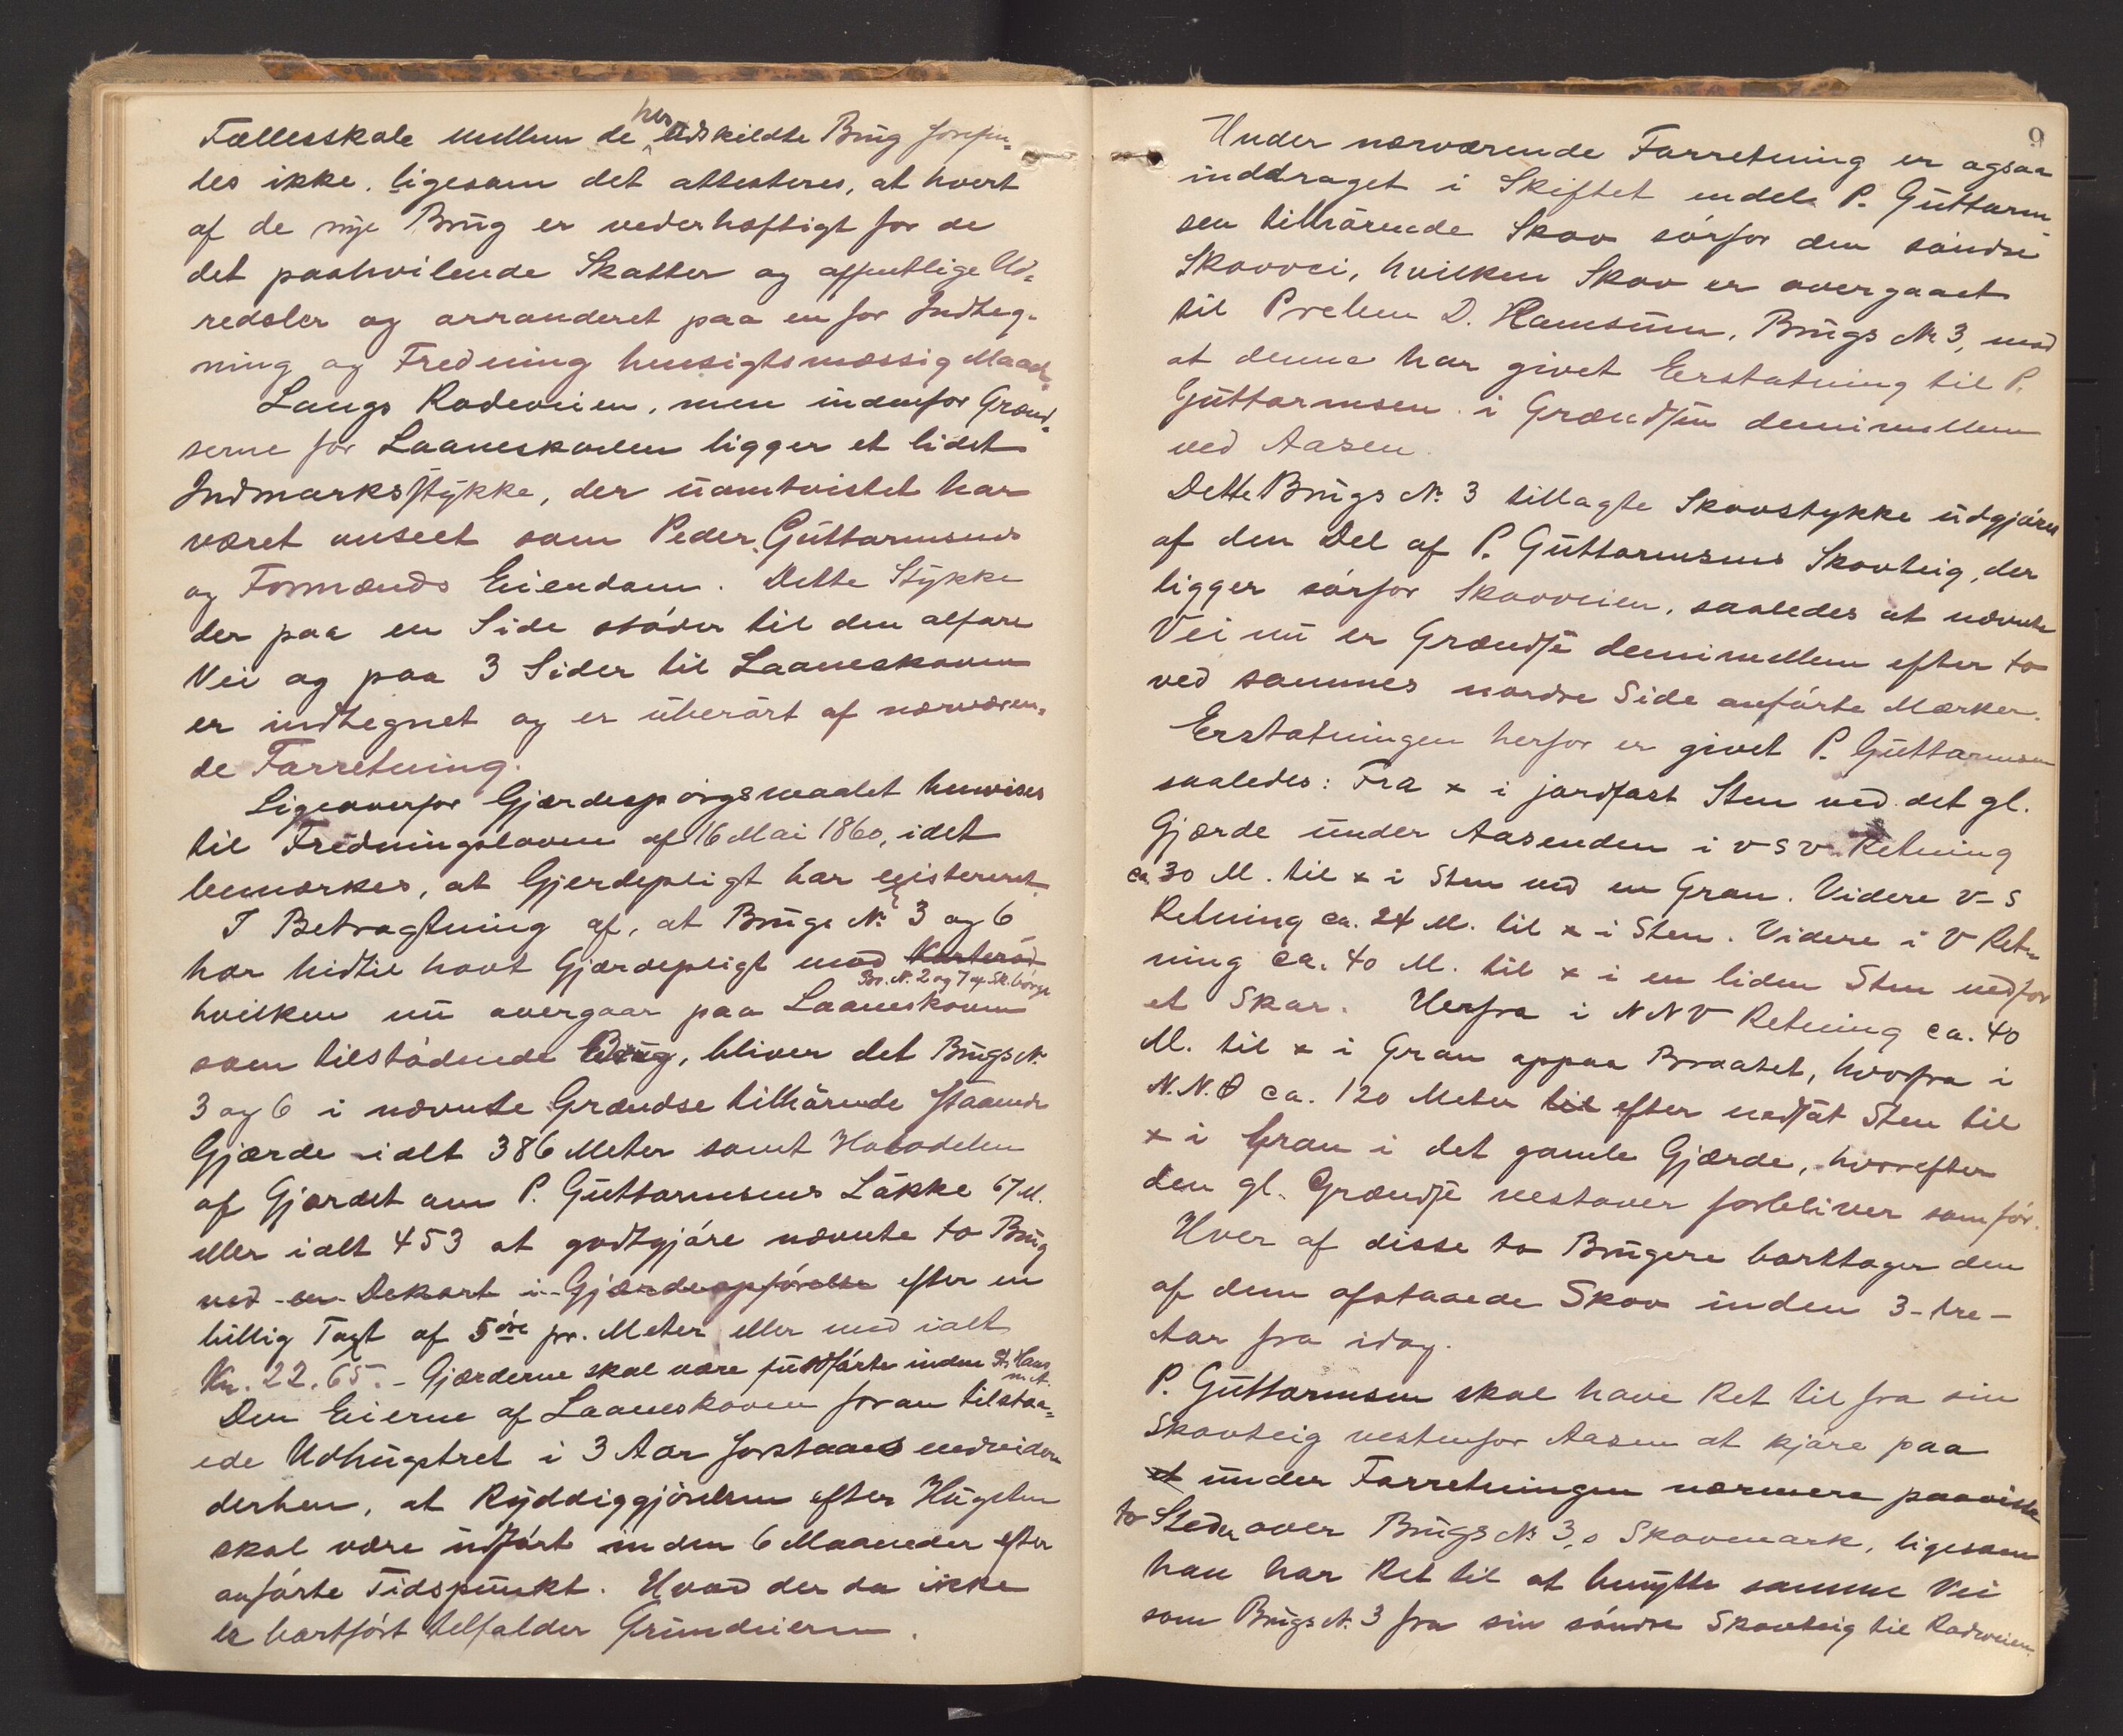 Fællesskale mellem de her udskildte Brug forefin-
des ikke, ligesom det attesteres, at hvert
af de nye Brug er vederhæftigt for de
det paahvilende Skatter og offentlige Ud-
redsler og arronderet paa en for Indheg-
ning og Fredning hensigtsmæssig Maade.
Langs Rodeveien, men indenfor Grænd-
serne for Laaneskoven ligger et lidet
Indmarksstykke, der uomtvistet har
været anseet som Peder Guttormsens
og Formænds Eiendom. Dette Stykke
der paa en Side støder til den alfare
Vei og paa 3 Sider til Laaneskoven
er indhegnet og er uberørt af nærværen-
de Forretning.
Ligeoverfor Gjærdespørgsmaalet henvises
til Fredningsloven af 16 Mai 1860, idet
bemærkes, at Gjerdepligt har existeret.
I Betragtning af, at Brugs No. 3 og 6
har hidtil havt Gjærdepligt mod Korterød
Br. N. 2 og 7 af Sk.børge
hvilken nu overgaar paa Laaneskoven
som tilstødende Brug, bliver det Brugs No.
3 og 6 i nævnte Grændse tilhørende staaende
Gjærde ialt 386 Meter samt Halvdelen
af Gjærdet om P. Guttormsens Løkke 67 M.
eller ialt 453 at godtgjøre nævnte to Brug
ved en Dekort i Gjærdeopførelse efter en
billig Taxt af 5 øre pr. Meter eller med ialt
Kr. 22.65. - Gjærderne skal være fuldførte inden St. Hans
n. A.
Den Eierne af Laaneskoven foran tilstaa-
ede Udhugstret i 3 Aar forstaaes endvidere
derhen, at Ryddiggjørelsen efter Hugsten
skal være udført inden 6 Maaneder efter
anførte Tidspunkt. Hvad der da ikke
er bortført tilfalder Grundeieren.
9
Under nærværende Forretning er ogsaa
inddraget i Skiftet endel P. Guttorm-
sen tilhørende Skov sørfor den søndre
Skovvei, hvilken Skov er overgaaet
til Preben D. Hamsunn, Brugs No 3, mod
at denne har givet Erstatning til P.
Guttormsen i Grændsen demimellem
ved Aasen.
Dette Brugs No. 3 tillagte Skovstykke udgjøres
af den Del af P. Guttormsens Skovteig, der
ligger sørfor Skovveien, saaledes at nævnte
Vei nu er Grændse demimellem efter to
ved sammes nordre Side anførte Mærker.
Erstatningen herfor er givet P. Guttormsen
saaledes: Fra x i jordfast Sten ved det gl.
Gjærde under Aasenden i v s v. Retning
ca 30 M. til x i Sten ved en Gran. Videre V-S
Retning ca. 24 M. til x i Sten. Videre i V Ret-
ning ca. 40 M. til x i en liden Sten nedfor
et Skar. Herfra i N N V Retning ca. 40
M. til x i Gran oppaa Braatet, hvorfra i
N.N.Ø ca. 120 Meter til efter nedsat Sten til
x i Gran i det gamle Gjærde, hvorefter
den gl. Grændse vestover forbliver som før.
Hver af disse to Brugere borttager den
af dem afstaaede Skov inden 3 - tre -
Aar fra idag.
P. Guttormsen skal have Ret til fra sin
Skovteig vestenfor Aasen at kjøre paa
et under Forretningen nærmere paaviste
to Steder over Brugs No. 3,s Skovmark, ligesom
han har Ret til at benytte samme Vei
som Brugs N. 3 fra sin søndre Skovteig til Rodeveien